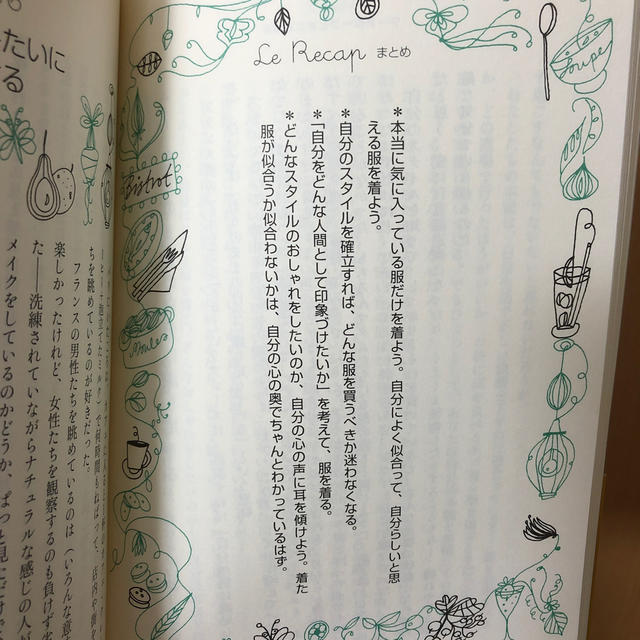 Le Recap まとめ
＊本当に気に入っている服だけを着よう。自分によく似合って、自分らしいと思
える服を着よう。
＊自分のスタイルを確立すれば、どんな服を買うべきか迷わなくなる。
＊「自分をどんな人間として印象づけたいか」を考えて、服を着る。
＊どんなスタイルのおしゃれをしたいのか、自分の心の声に耳を傾けよう。着た
服が似合うか似合わないかは、自分の心の奥でちゃんとわかっているはず。
Soupe
Bistrot
Moules
たいに
る
ちを眺めているのが好きだった。
フランスの男性たちを眺めているのは（いろんな意
楽しかったけれど、女性たちを観察するのも負けず
た――洗練されていながらナチュラルな感じの人が
メイクをしているのかどうか、ぱっと見ただけで